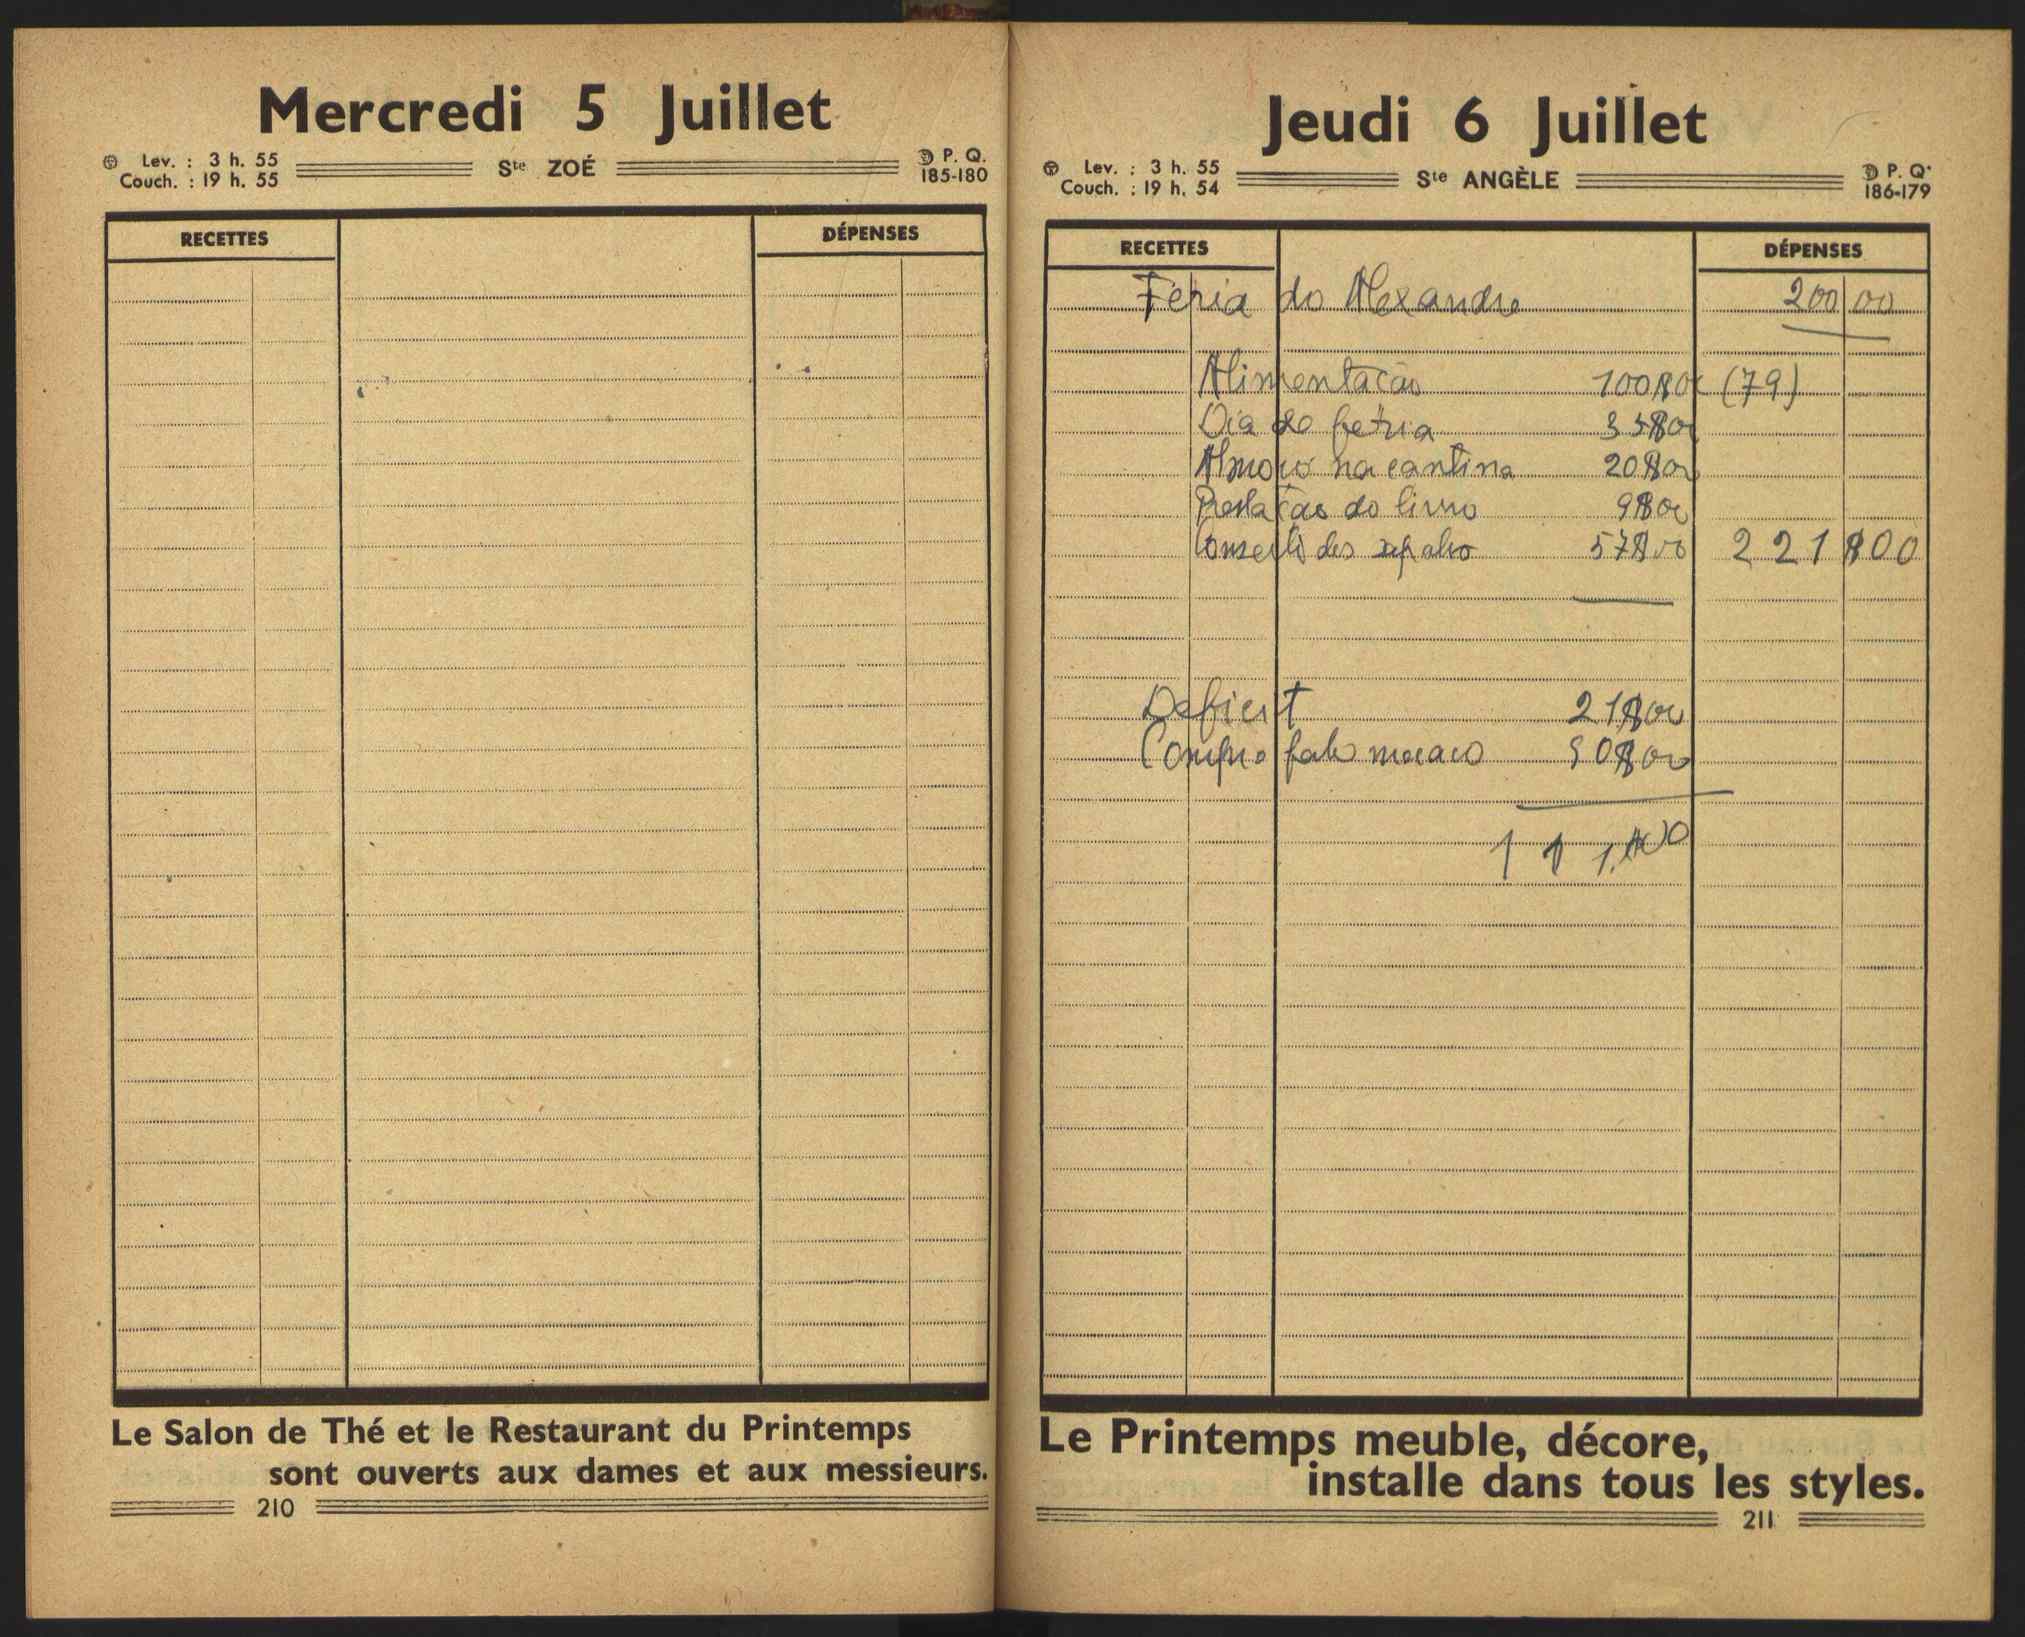 Mercredi 5 Juillet
Lev. : 3 h. 55
Couch. : 19 h. 55
Ste ZOÉ
P. Q.
185-180
RECETTES
DÉPENSES
Le Salon de Thé et le Restaurant du Printemps
sont ouverts aux dames et aux messieurs.
210
Jeudi 6 Juillet
Lev. : 3 h. 55
Couch. : 19 h. 54
Ste ANGÈLE
P. Q.
186-179
RECETTES
DÉPENSES
Feria do Alexandre 200 00
Alimentação 100$00 (79)
Dia de feria 35$00
Almoço na cantina 20$00
Prestação do livro 9$00
Conserto des 57$00 221$00
Deficit 21$00
Compra fato macaco 90$00
111$00
Le Printemps meuble, décore,
installe dans tous les styles.
211